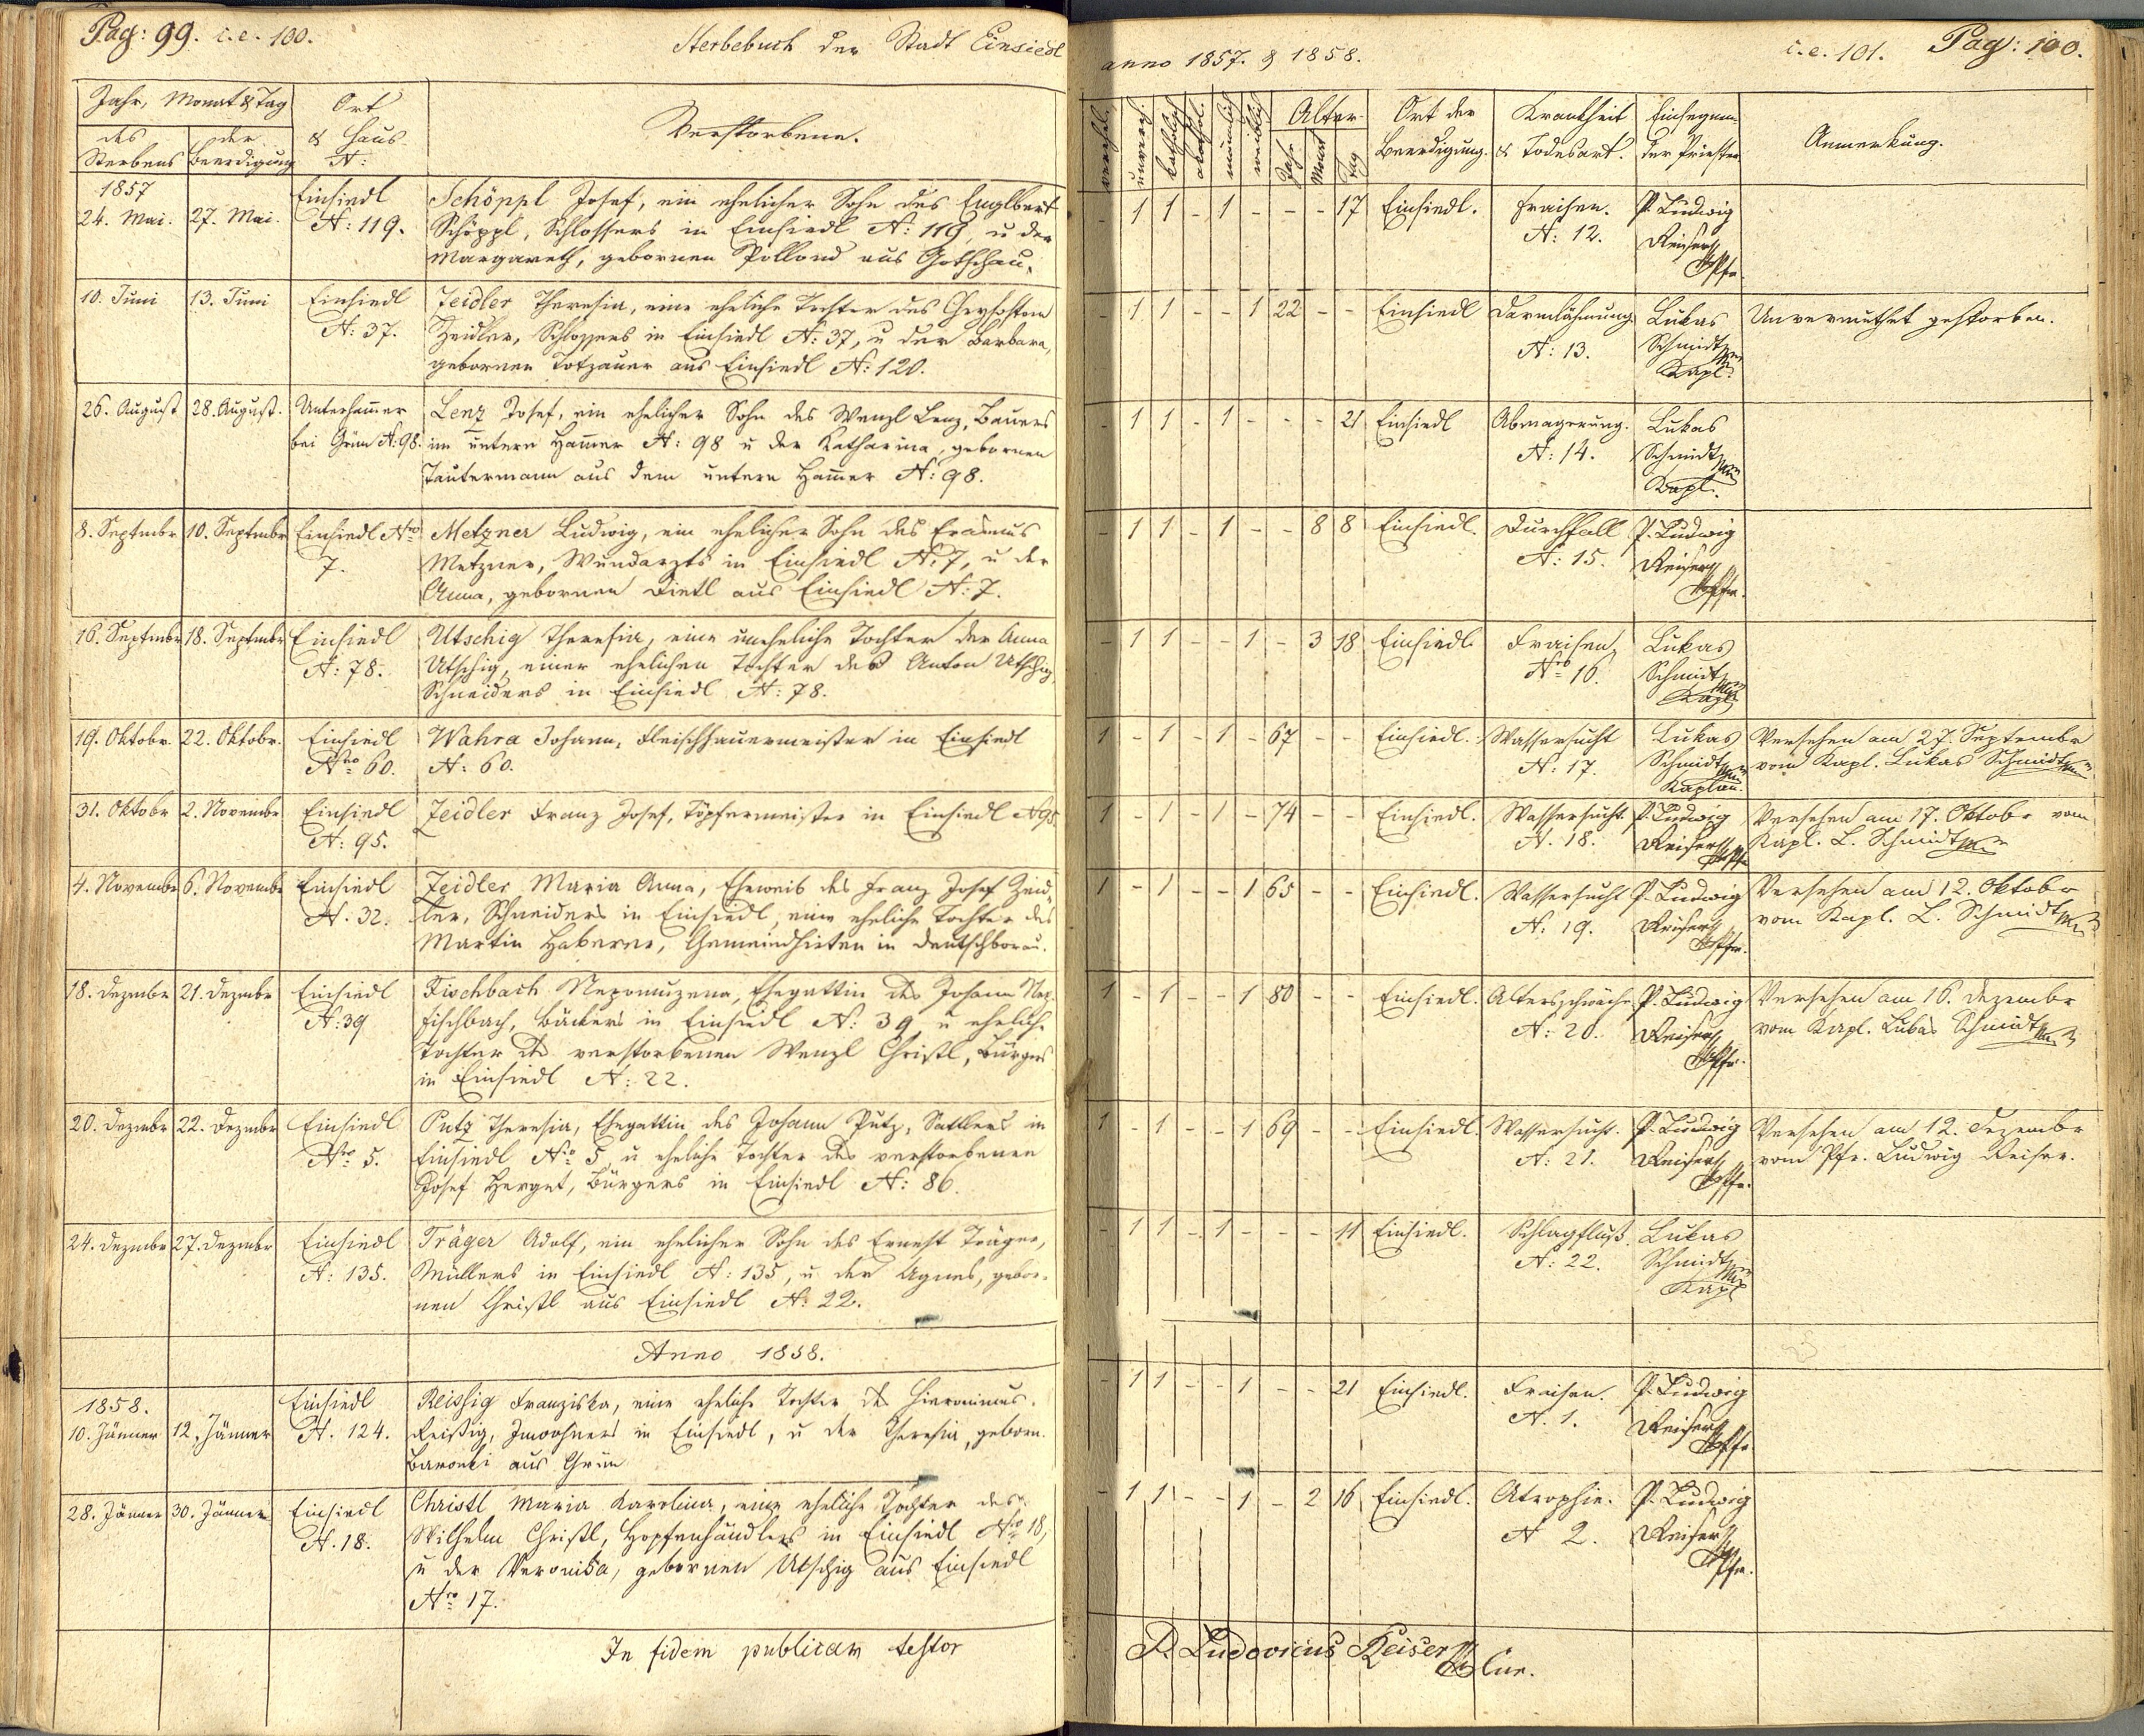 Pag: 99. i.e. 100.
Sterbebuch der Stadt Einsiedl
Jahr, Monat & Tag
des Sterbens
der Beerdigung
Ort & Haus N:
Verstorbene.
1857
24. Mai.
27. Mai.
Einsiedl
N: 119.
Schöppl Josef, ein ehelicher Sohn des Englbert
Schöppl, Schlossers in Einsiedl N: 119, u der
Margareth, gebornen Pollond aus Gotschau.
10. Juni
13. Juni
Einsiedl
N: 37.
Zeidler Theresia, eine eheliche Tochter des
Zeidler, Schlossers in Einsiedl N: 37, u der Barbara,
gebornen Totzauer aus Einsiedl N: 120.
26. August
28. August.
Unterhamer
bei Grün N: 98.
Lenz Josef, ein ehelicher Sohn des Wenzl Lenz, Bauers
im untern Hamer N: 98 u der Katharina, gebornen
Tautermann aus dem untern Hamer N: 98.
8. Septmbr
10. Septmbr
Einsiedl Nro
7.
Metzner Ludwig, ein ehelicher Sohn des Erasmus
Metzner, Wundarzts in Einsiedl N: 7, u der
Anna, gebornen Dietl aus Einsiedl N: 7.
16. Septmbr
18. Septmbr
Einsiedl
N: 78.
Utschig Theresia, eine uneheliche Tochter der Anna
Utschig, einer ehelichen Tochter des Anton Utschig,
Schneiders in Einsiedl N: 78.
19. Oktobr.
22. Oktobr.
Einsiedl
Nro 60.
Wahra Johann, Fleischhauermeister in Einsiedl
N: 60.
31. Oktobr
2. Novembr
Einsiedl
N: 95.
Zeidler Franz Josef, Töpfermeister in Einsiedl N 95.
4. Novembr
6. Novembr
Einsiedl
N. 32.
Zeidler Maria Anna, Eheweib des Franz Josef Zeid
ler, Schneiders in Einsiedl, eine eheliche Tochter des
Martin Haberer, Gemeindhirten in Deutschborau.
18. Dezmbr
21. Dezmbr
Einsiedl
N: 39
Fischbach Nepomuzena, Ehegattin des Johann Nep.
Fischbach, Bäckers in Einsiedl N: 39, u eheliche
Tochter des verstorbenen Wenzl Christl, Bürgers
in Einsiedl N: 22.
20. Dezmbr
22. Dezmbr
Einsiedl
Nro 5.
Putz Theresia, Ehegattin des Johann Putz, Sattlers in
Einsiedl Nro 5, u eheliche Tochter des verstorbenen
Josef Herget, Bürgers in Einsiedl N: 86.
24. Dezmbr
27. Dezmbr
Einsiedl
N: 135.
Träger Adolf, ein ehelicher Sohn des Ernest Träger,
Müllers in Einsiedl N: 135, u der Agnes, gebor-
nen Christl aus Einsiedl N: 22.
Anno 1858.
1858.
10. Jänner
12. Jänner
Einsiedl
N. 124.
Reissig Franziska, eine eheliche Tochter des Hieronimus
Reißig, Inwohners in Einsiedl, u der Theresia, geborn.
aus Grün
28. Jänner
30. Jänner
Einsiedl
N. 18.
Christl Maria Karolina, eine eheliche Tochter des
Wilhelm Christl, Hopfenhändlers in Einsiedl Nro 18,
u der Veronika, gebornen Utschig aus Einsiedl
Nro 17.
In fidem publicam testor
anno 1857. & 1858.
i.e. 101. Pag: 100.
katholisch
männlich
weiblich
Alter
Jahr
Monat
Tag
Ort der Beerdigung.
Krankheit & Todesart.
Einsegnen
der Priester
Anmerkung.
- 1 1 - 1 - - - 17 Einsiedl. Fraisen. P. Ludwig
N: 12. Reiser
Pfr.
- 1 1 - - 1 22 - - Einsiedl Darmlähmung. Lukas Unvermuthet gestorben.
N: 13. Schmidt
Kapl.
- 1 1 - 1 - - - 21 Einsiedl Abmagerung. Lukas
N: 14. Schmidt
Kapl.
- 1 1 - 1 - - 8 8 Einsiedl. Durchfall P. Ludwig
N: 15. Reiser
Pfr.
- 1 1 - - 1 - 3 18 Einsiedl. Fraisen, Lukas
Nro 16. Schmidt
Kapl.
1 - 1 - 1 - 67 - - Einsiedl. Wassersucht Lukas Versehen am 27. Septembr
N: 17. Schmidt vom Kapl. Lukas Schmidt
Kaplan.
1 - 1 - 1 - 74 - - Einsiedl. Wassersucht. P. Ludwig Versehen am 17. Oktobr vom
N. 18. Reiser Pfr Kapl. L. Schmidt
1 - 1 - - 1 65 - - Einsiedl. Wassersucht P. Ludwig Versehen am 12. Oktobr
N: 19. Reiser vom Kapl. L. Schmidt
Pfr.
1 - 1 - - 1 80 - - Einsiedl. Altersschwäche P. Ludwig Versehen am 16. Dezembr
N: 20. Reiser vom Kapl. Lukas Schmidt
Pfr.
1 - 1 - - 1 69 - - Einsiedl. Wassersucht. P. Ludwig Versehen am 12. Dezembr
N: 21. Reiser vom Pfr. Ludwig Reiser.
Pfr.
- 1 1 - 1 - - - 11 Einsiedl. Schlagfluß. Lukas
N: 22. Schmidt
Kapl
- 1 1 - - 1 - - 21 Einsiedl. Fraisen. P. Ludwig
N. 1. Reiser
Pfr
- 1 1 - - 1 - 2 16 Einsiedl. Atrophie. P. Ludwig
N 2. Reiser
Pfr.
P. Ludovicus Reiser Cur.